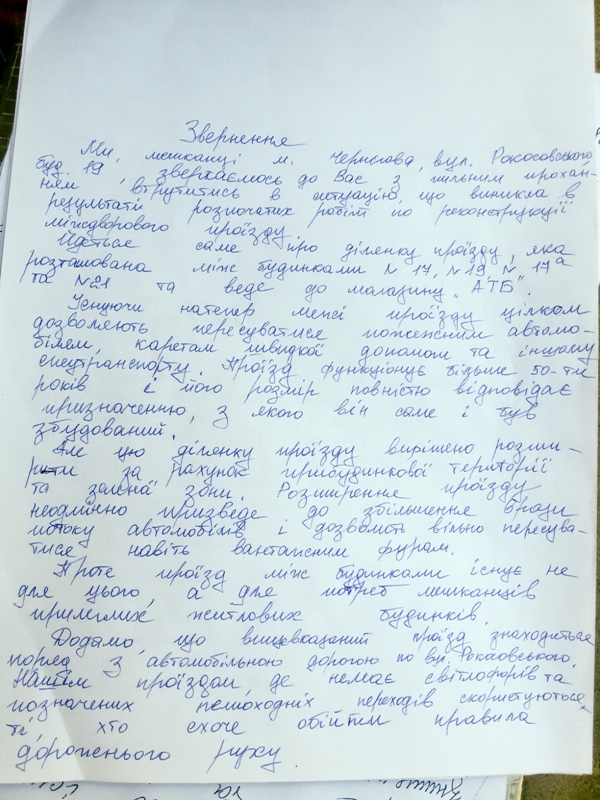 Звернення
Ми, мешканці м. Чернігова, вул. Рокосовського,
буд. 19, звертаємось до Вас з пильним прохан-
ням втрутитись в ситуацію, що виникла в
результаті розпочатих робіт по реконструкції
міждворового проїзду.
Йдеться саме про ділянку проїзду, яка
розташована між будинками N 17, N19, N 17а
та N21 та веде до магазину „АТБ".
Існуючи натепер межі проїзду цілком
дозволяють пересуватися пожежним автомо-
білям, каретам швидкої допомоги та іншому
спецтранспорту. Проїзд функціонує більше 50-ти
років і його розмір повністю відповідає
призначенню, з якого він саме і був
збудований.
Але цю ділянку проїзду вирішено розши-
рити за рахунок прибудинкової території
та зеленої зони. Розширення проїзду
неодмінно призведе до збільшення в рази
потоку автомобілів і дозволить вільно пересува-
тися навіть вантажним фурам.
Проте проїзд між будинками існує не
для цього, а для потреб мешканців
прилеглих житлових будинків.
Додамо, що вищевказаний проїзд знаходиться
поряд з автомобільною дорогою по вул. Рокосовського.
Нашим проїздом, де немає світлофорів та
позначених пішоходніх переходів скористуються
ті, хто схоче обійти правила
дорожнього руху.